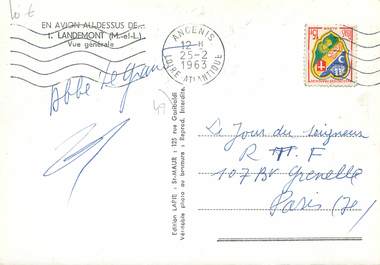 10 €
EN AVION AU-DESSUS DE...
1. LANDEMONT (M.-et-L.)
Vue générale
ANCENIS
12-H
25-2
1963
LOIRE ATLANTIQUE
Abbé
49
Edition LAPIE - St-MAUR : 125 rue Garibaldi
Véritable photo au bromure - Reprod. Interdite.
Le Jour du Seigneur
R T F
107 Bd Grenelle
Paris (7e)